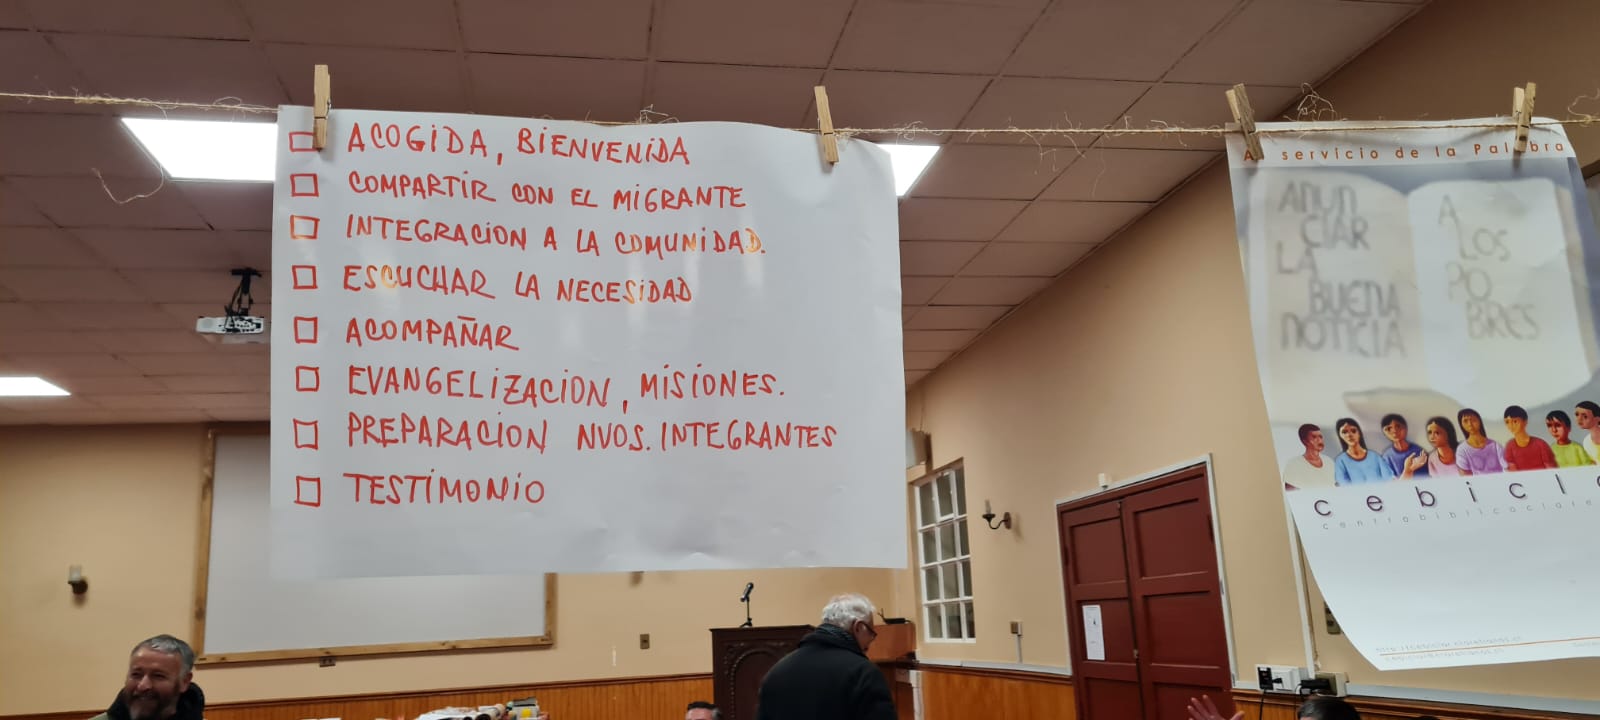 ACOGIDA, BIENVENIDA
COMPARTIR CON EL MIGRANTE
INTEGRACION A LA COMUNIDAD.
ESCUCHAR LA NECESIDAD
ACOMPAÑAR
EVANGELIZACION, MISIONES.
PREPARACION NVOS. INTEGRANTES
TESTIMONIO
Al servicio de la Palabra
ANUN
CIAR
LA
BUENA
NOTICIA
A
LOS
PO
BRES
cebicla